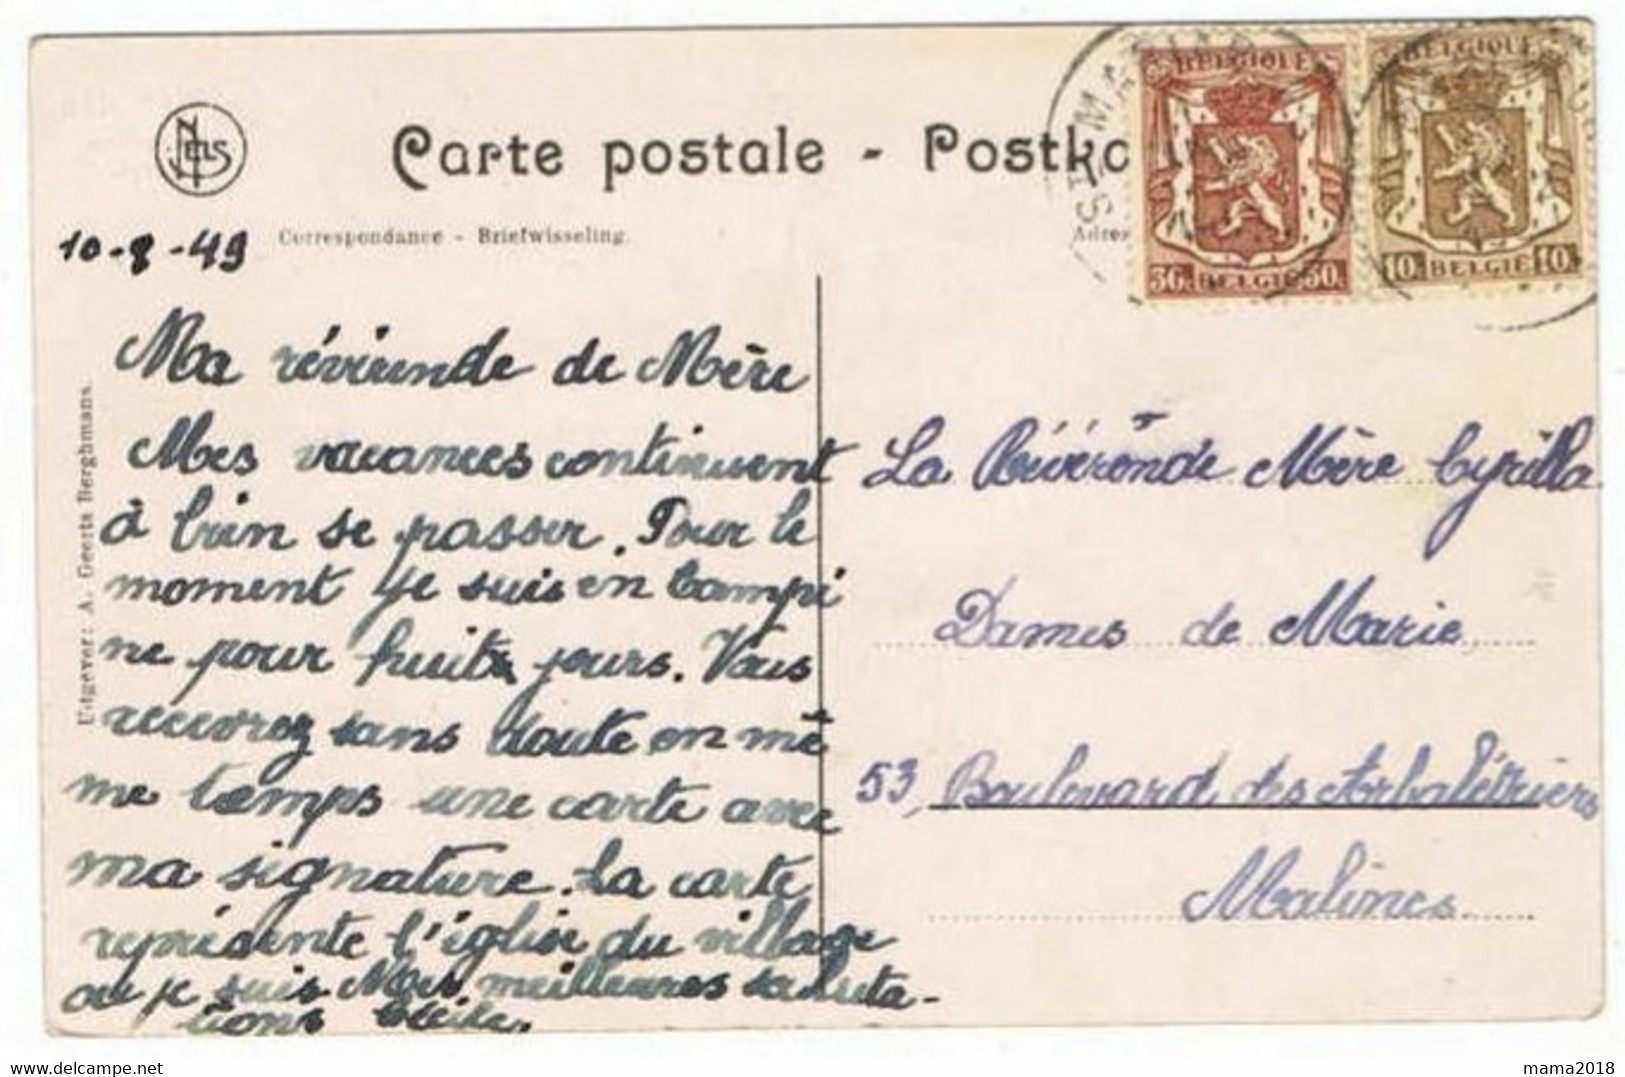 NELS
Carte postale - Postka
Correspondance - Briefwisseling.
Adres
BELGIQUE
BELGIQUE
BELGIE
10 BELGIE 10
ST MA
10-8-49
Uitgever: A. Geerts Berghmans.
Ma révérende de Mère
Mes vacances continuent
à bien se passer. Pour le
moment je suis en Campi
ne pour huit jours. Vous
recevrez sans doute en mê
me temps une carte avec
ma signature. La carte
représente l'église du village
où je suis Mes meilleures saluta-
tions Cécile.
La Révérende Mère Cyrilla
Dames de Marie
53, Boulevard des Arbalétriers
Malines
mama2018